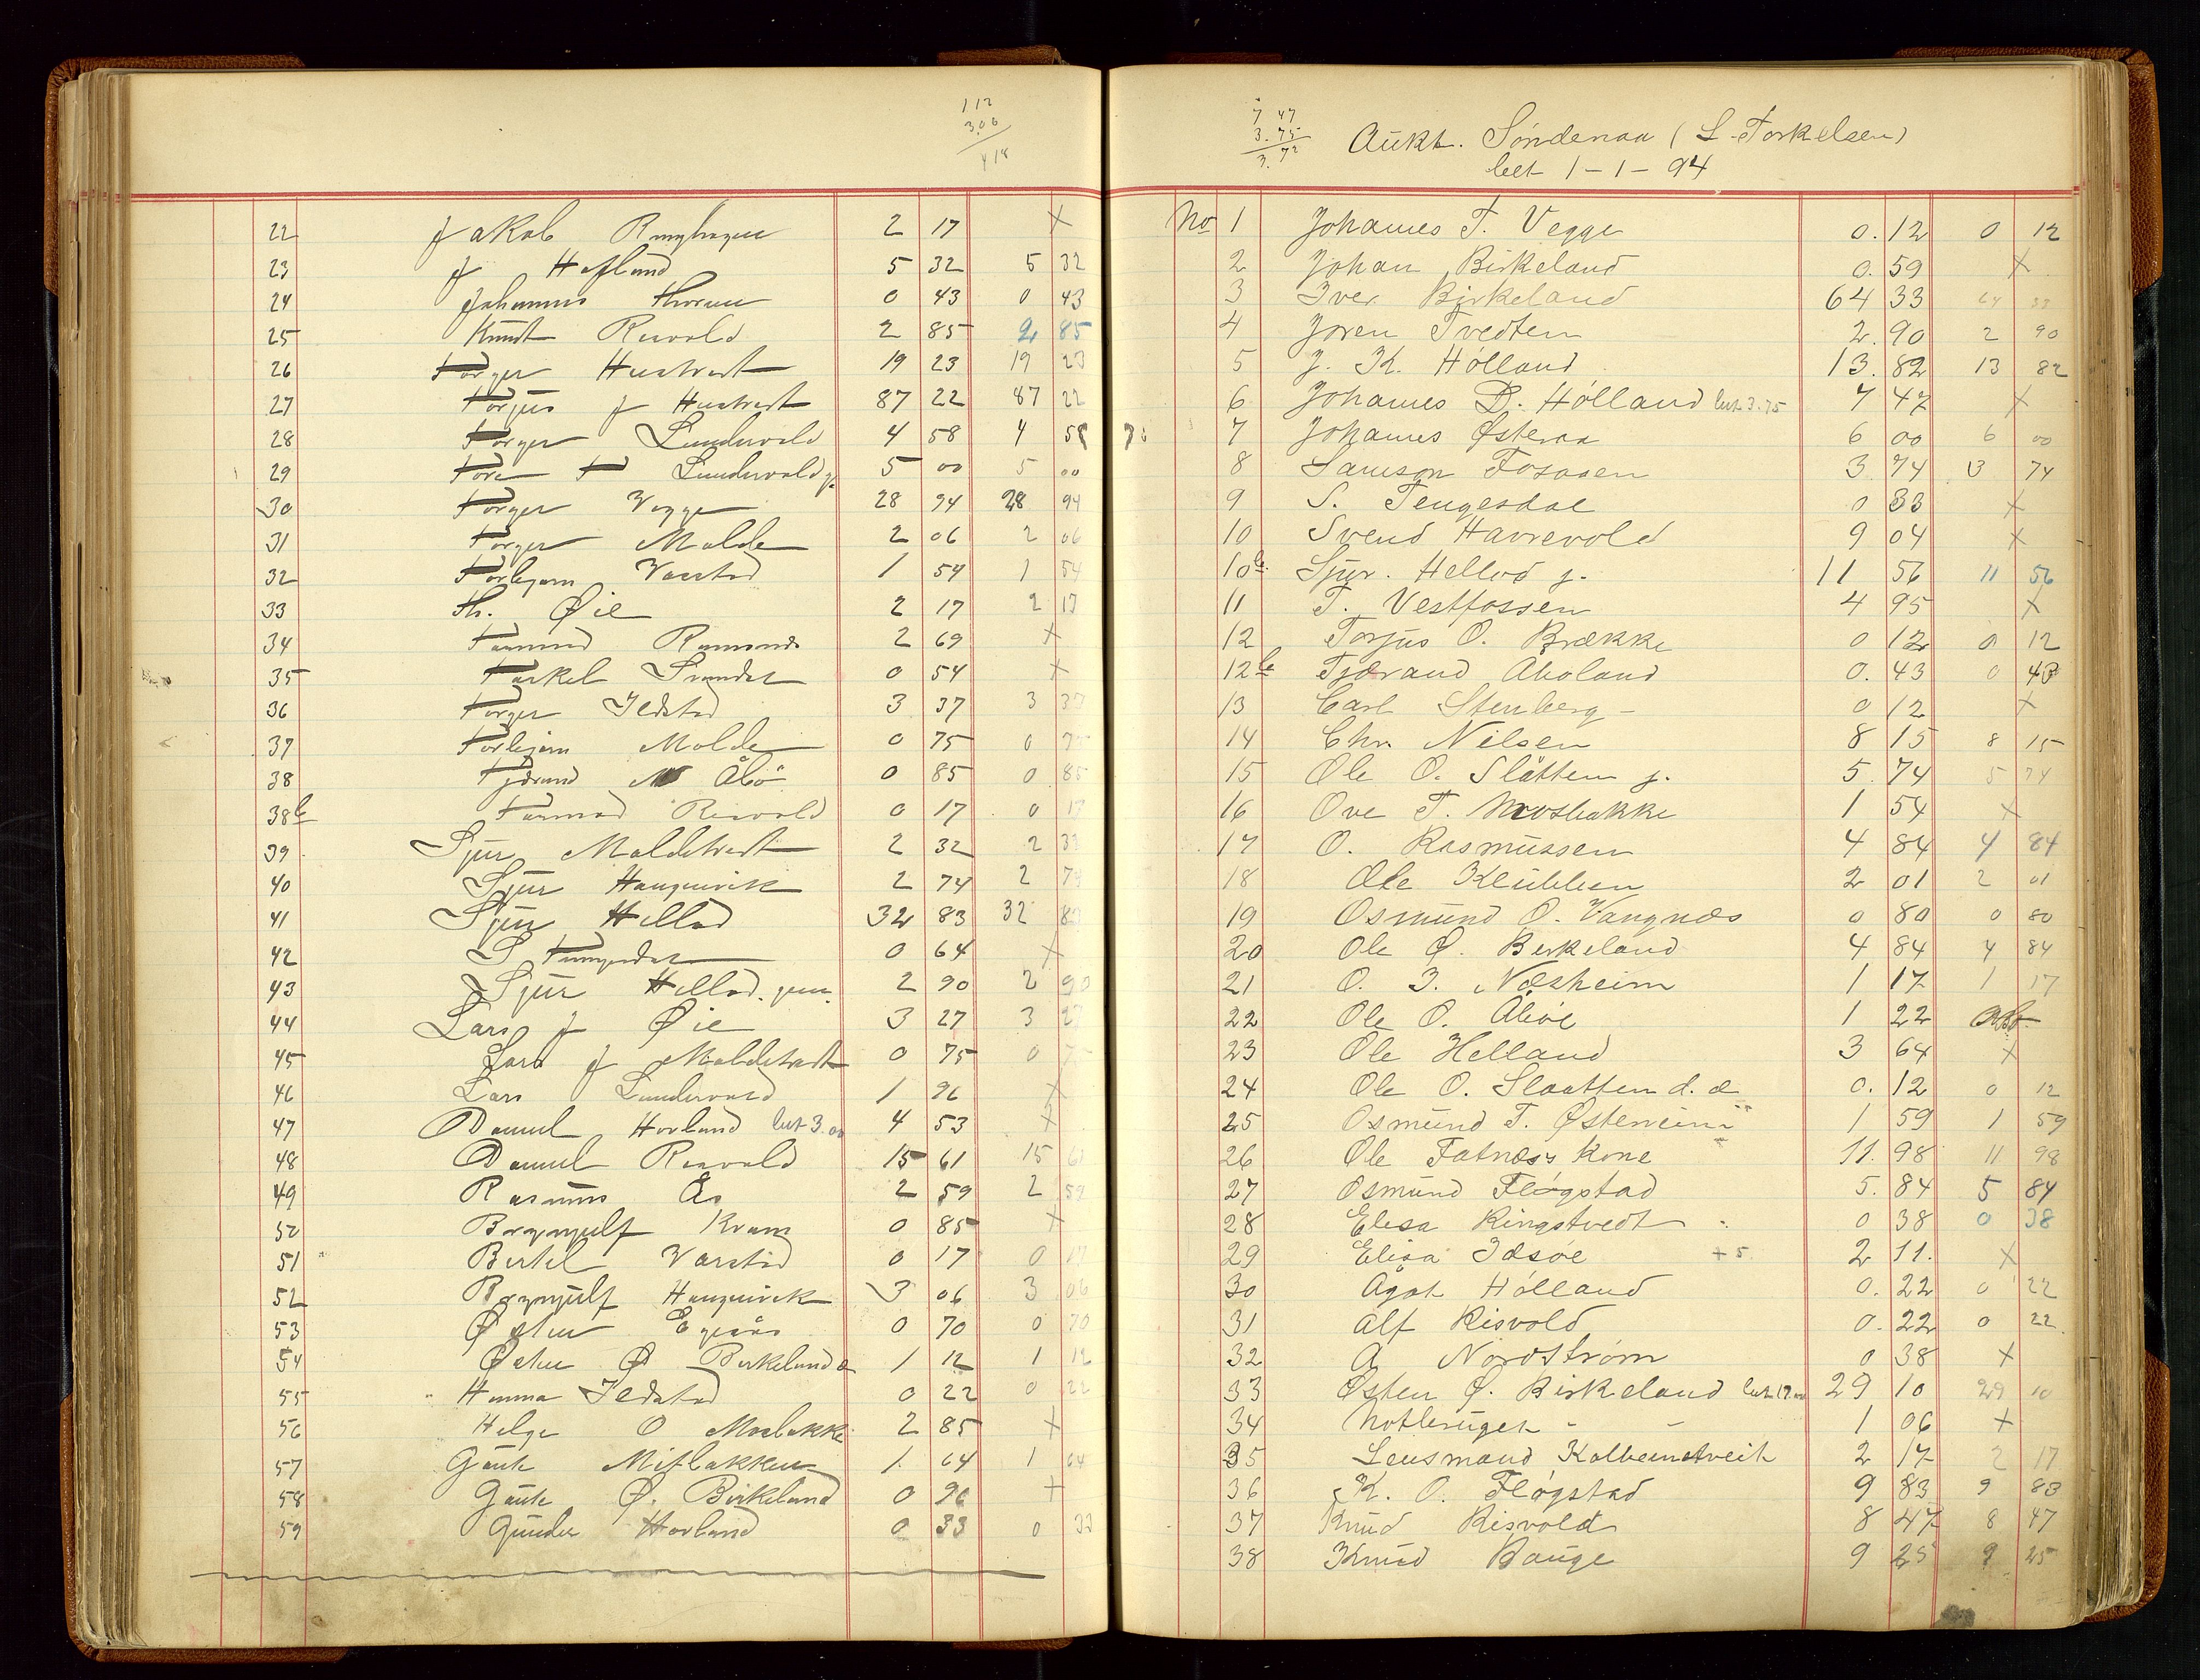 112
3.06
4 18
22 Jakob 2 17 X
23 J Hofland 5 32 5 32
24 Johannes 0 43 0 43
25 Knudt Risvold 2 85 2 85
26 Torger Hustvedt 19 23 19 23
27 Torjus J Hustvedt 87 22 87 22
28 Torger Lundervold 4 58 4 58
29 Tore T Lundervold 5 00 5 00
30 Torger Vegge 28 94 28 94
31 Torger Molde 2 06 2 06
32 Torbjørn Vaestad 1 54 1 54
33 Th. Øie 2 17 2 17
34 2 69 X
35 Torkel 0 54 X
36 Torger Ildstad 3 37 3 37
37 Torbjørn Molde 0 75 0 75
38 Tjerand Åbö 0 85 0 85
38b Tormod Risvold 0 17 0 17
39 Sjur Moldetvedt 2 32 2 32
40 Sjur Haugenvik 2 74 2 74
41 Sjur Hellad 32 83 32 83
42 S 0 64 X
43 Sjur Hellad. jun. 2 90 2 90
44 Lars J Øie 3 27 3 27
45 Lars J Moldetvedt 0 75 0 75
46 Lars Lundervold 1 96 X
47 Daniel Horland bet 3.00 4 53 X
48 Daniel Risvold 15 61 15 61
49 Rasmus Ås 2 59 2 59
50 Brynjulf Kvam 0 85 X
51 Bertel Varstad 0 17 0 17
52 Brynjulf Haugenvik 3 06 3 06
53 Østen 0 70 0 70
54 Østen Ø Birkeland 1 12 1 12
55 Hanna Ildstad 0 22 0 22
56 Helge O Mosbakke 2 85 X
57 Gaute Mitbakken 1 64 1 64
58 Gaute Ø. Birkeland 0 96 X
59 Gunder Horland 0 33 0 33
7 47
3.75
3.72
Aukt. Söndenaa (L. Torkelsen)
bet 1-1-94
No 1 Johannes T. Vegge 0.12 0 12
2 Johan Birkeland 0.59 X
3 Iver Birkeland 64 33 64 33
4 Joren Tvedten 2.90 2 90
5 J. K. Hölland 13.82 13 82
6 Johannes D. Hölland bet 3.75 7 47 X
7 Johannes Østeraa 6 00 6 00
8 Samson Fosaaen 3 74 3 74
9 S. Tengesdal 0 33 X
10 Svend Havrevold 9 04 X
10b Sjur. Hellad j. 11 56 11 56
11 T. Vestfossen 4 95 X
12 Torjus O. Brække 0 12 0 12
12b Tjærand Aboland 0.43 0 43
13 Carl Stenberg - 0 12 X
14 Chr. Nilsen 8 15 8 15
15 Ole O. Slåtten j. 5.74 5 74
16 Ove T. Mosbakke 1 54 X
17 O. Rasmussen 4 84 4 84
18 Ole Klubben 2 01 2 01
19 Osmund O. Vangnæs 0 80 0 80
20 Ole Ø. Berkeland 4 84 4 84
21 O. I. Næsheim 1 17 1 17
22 Ole O. Aböe 1 22
23 Ole Helland 3 64 X
24 Ole O. Slaatten d. æ 0.12 0 12
25 Osmund T. 1 59 1 59
26 Ole Fatnæss Kone 11.98 11 98
27 Osmund Flögstad 5.84 5 84
28 Elisa Ringstvedt 0 38 0 38
29 Elisa Idsöe + 5 2 11. X
30 Agat Hölland 0.22 0 22
31 Alf Risvold 0.22 0 22
32 A Nordström 0 38 X
33 Østen Ø. Birkeland bet 19.00 29 10 29 10
34 Notbruget - - 1 06 X
35 Lensmand Kolbeinstveit 2 17 2 17
36 K. O. Flögstad 9 83 9 83
37 Knud Risvold 8 47 8 47
38 Knud Bauge 9 25 9 25